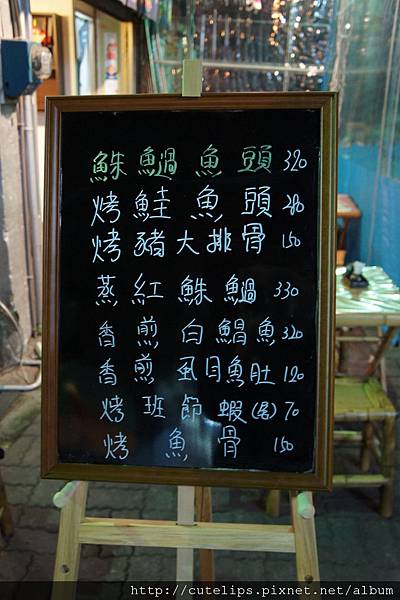 鮢鯝魚頭 320
烤鮭魚頭 280
烤豬大排骨 150
蒸紅鮢鯝 330
香煎白鯧魚 320
香煎虱目魚肚 120
烤班節蝦(隻) 70
烤魚骨 150
http://cutelips.pixnet.net/album